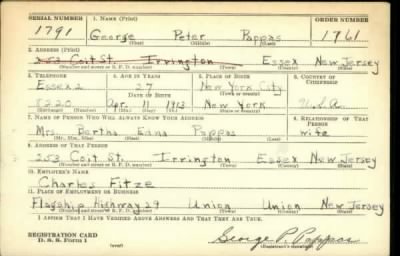 SERIAL NUMBER 1. NAME (Print) ORDER NUMBER
1791 George Peter Pappas 1761
(First) (Middle) (Last)
2. ADDRESS (Print)
253 Coit St. Irvington Essex New Jersey
(Number and street or R. F. D. number) (Town) (County) (State)
3. TELEPHONE 4. AGE IN YEARS 5. PLACE OF BIRTH 6. COUNTRY OF CITIZENSHIP
Essex 2 27 New York City
DATE OF BIRTH (Town or county)
8220 Apr. 11 1913 New York U.S.A.
(Exchange) (Number) (Mo.) (Day) (Yr.) (State or country)
7. NAME OF PERSON WHO WILL ALWAYS KNOW YOUR ADDRESS 8. RELATIONSHIP OF THAT PERSON
Mrs. Bertha Edna Pappas wife
(Mr., Mrs., Miss) (First) (Middle) (Last)
9. ADDRESS OF THAT PERSON
253 Coit St. Irvington Essex New Jersey
(Number and street or R. F. D. number) (Town) (County) (State)
10. EMPLOYER'S NAME
Charles Fitze
11. PLACE OF EMPLOYMENT OR BUSINESS
Flagship Highway 29 Union Union New Jersey
(Number and street or R. F. D. number) (Town) (County) (State)
I AFFIRM THAT I HAVE VERIFIED ABOVE ANSWERS AND THAT THEY ARE TRUE.
REGISTRATION CARD
D. S. S. Form 1 (over) George P. Pappas
(Registrant's signature)